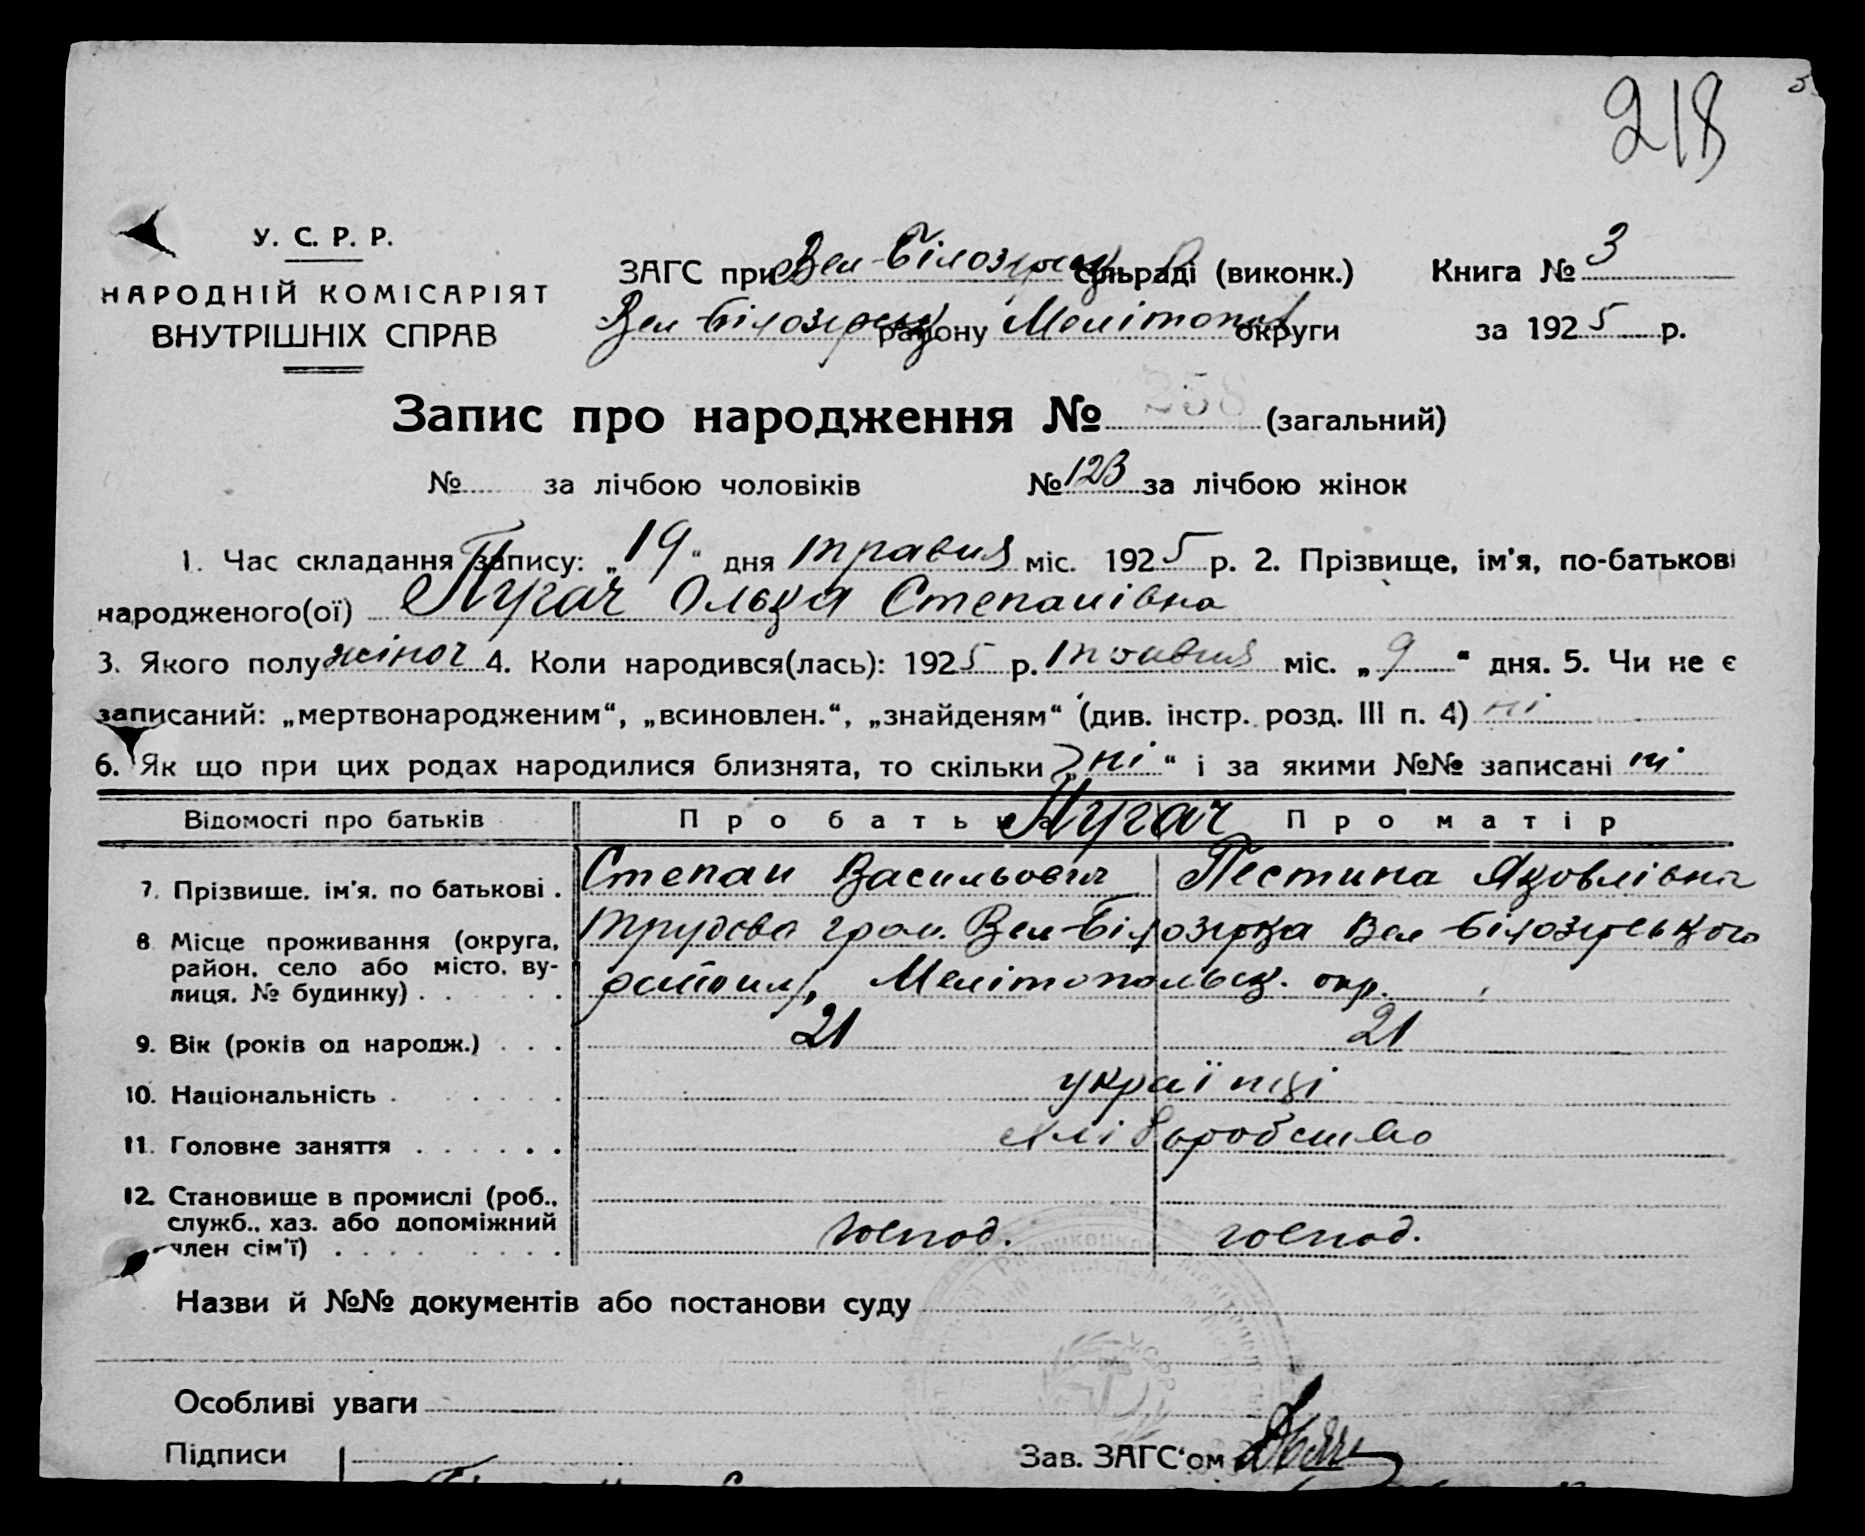 218
У. С. Р. Р.
НАРОДНІЙ КОМІСАРІЯТ
ВНУТРІШНІХ СПРАВ
ЗАГС при Вел-Білозерськ сільраді (виконк.) Книга № 3
Вел Білозерськ району Мелітоп округи за 1925 р.
Запис про народження № 258 (загальний)
№ за лічбою чоловіків № 123 за лічбою жінок
1. Час складання запису: „19“ дня травня міс. 1925 р. 2. Прізвище, ім'я, по-батькові
народженого(ої) Пугач Ольга Степанівна
3. Якого полу жіноч 4. Коли народився(лась): 1925 р. травня міс. „9“ дня. 5. Чи не є
записаний: „мертвонародженим“, „всиновлен.“, „знайденям“ (див. інстр. розд. III п. 4) ні
6. Як що при цих родах народилися близнята, то скільки „ні“ і за якими №№ записані ні
Відомості про батьків Про батька Пугач Про матір
7. Прізвище, ім'я, по батькові . Степан Васильович Пестина Яковлівна
8 Місце проживання (округа, район, село або місто, вулиця, № будинку) . . . . Трудова гром. Вел-Білозерка Вел Білозерського
району, Мелітопольськ. окр.
9. Вік (років од народж.) . . . 21 21
10. Національність . українці
11. Головне заняття . . . . . . хліборобство
12. Становище в промислі (роб.,
служб., хаз. або допоміжний
член сім'ї) господ. господ.
Назви й №№ документів або постанови суду
Особливі уваги
Підписи Зав. ЗАГС'ом